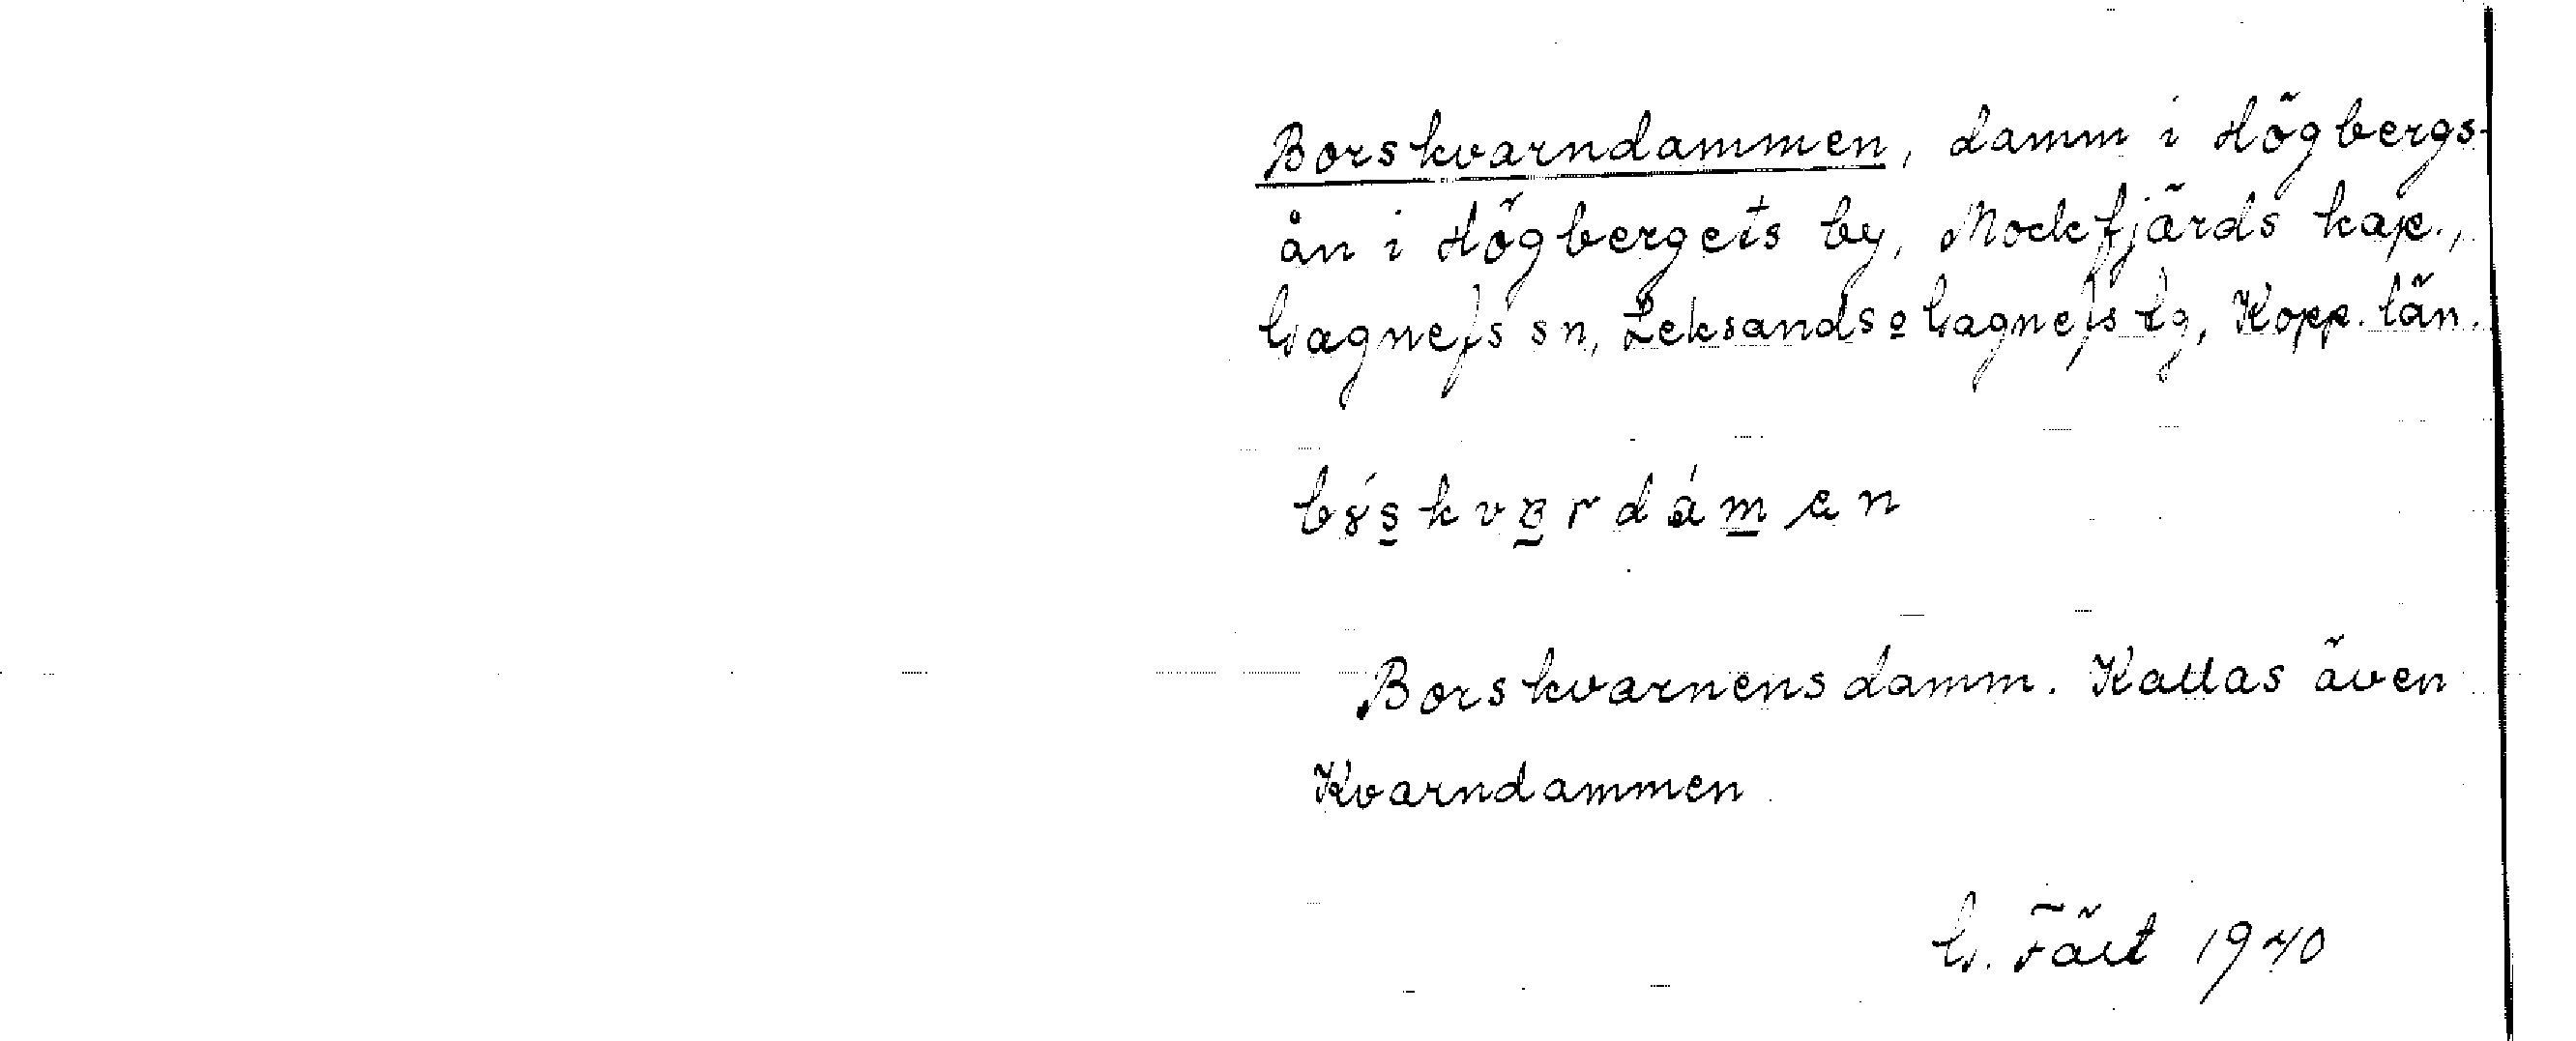 Borskvarndammen, damm i Högbergs-
ån i Högbergets by, Mockfjärds kap.,
Gagnefs sn, Leksands o Gagnefs tg, Kopp. län.
Borskvarnens damm. Kallas även
Kvarndammen
G. Fält 1940